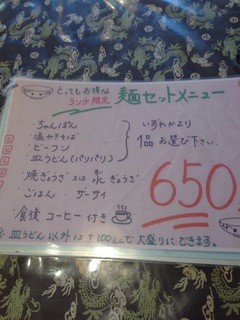 とってもお得な
ランチ限定
麺セットメニュー
・ちゃんぽん
・塩やきそば
・ビーフン
・皿うどん(パリパリ)
いずれかより
1品お選び下さい
・焼ぎょうざ又は水ぎょうざ
・ごはん ザーサイ
650
・食後コーヒー付き
※皿うどん以外は+100えんで大盛りにできます。